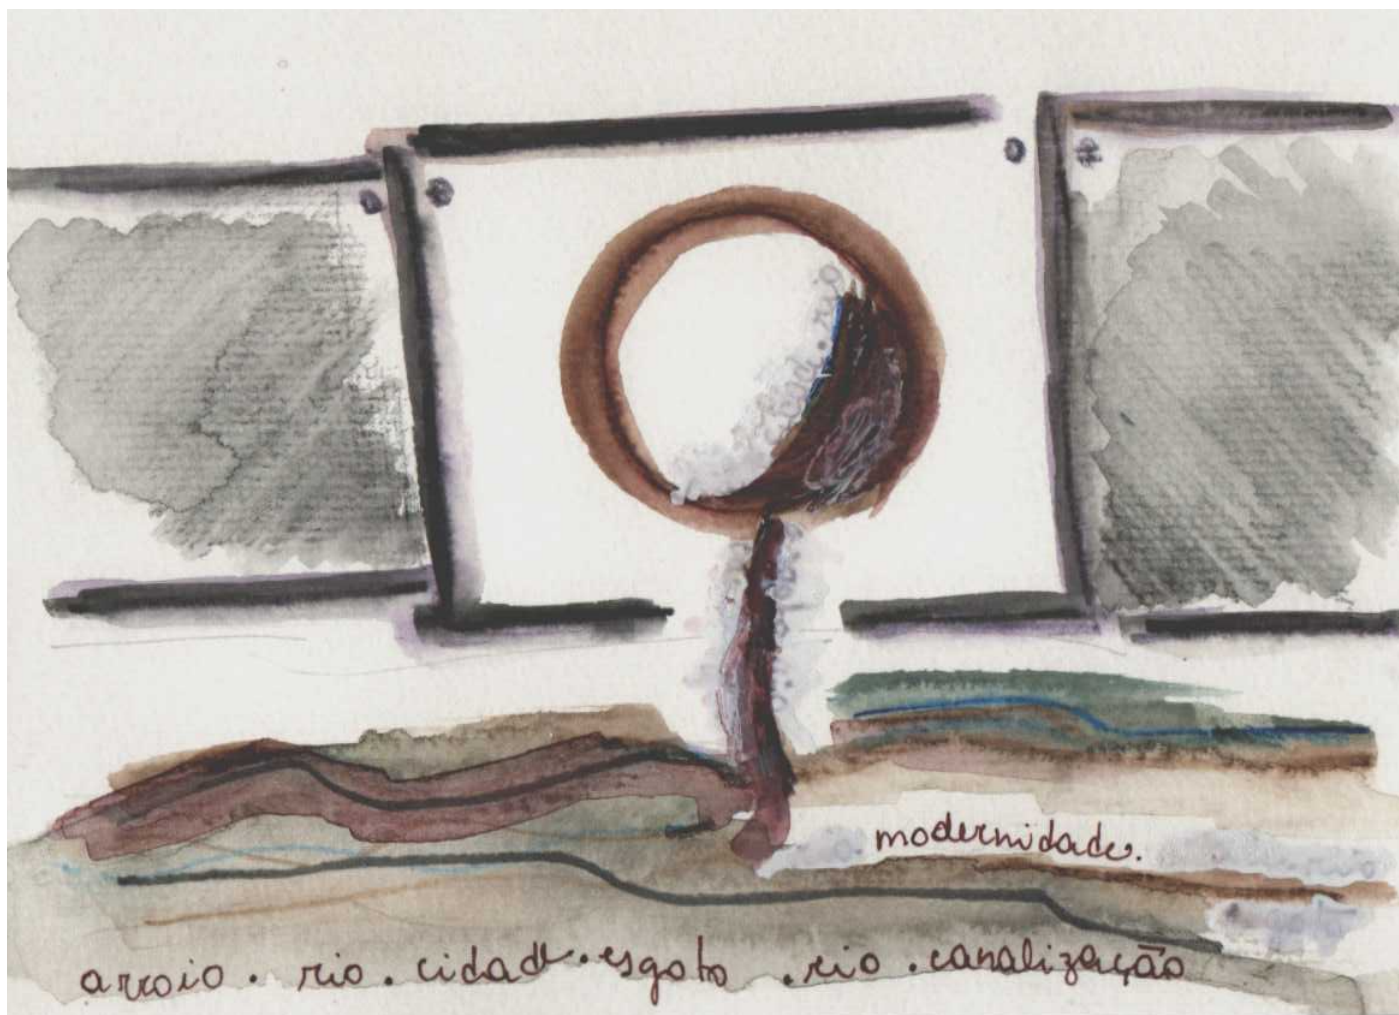 rio
modernidade.
arroio . rio . cidade . esgoto . rio . canalização